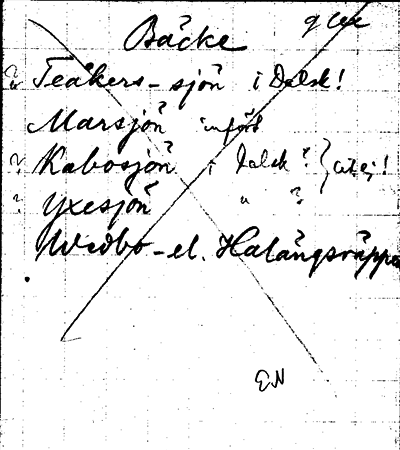 Bäcke
? Teåkers-sjön i Dalsk!
Marsjön infört
? Kabosjön i Dalsk ? } ej!
? Yxesjön " ?
Wedbo- el. Halängsräppa
EN